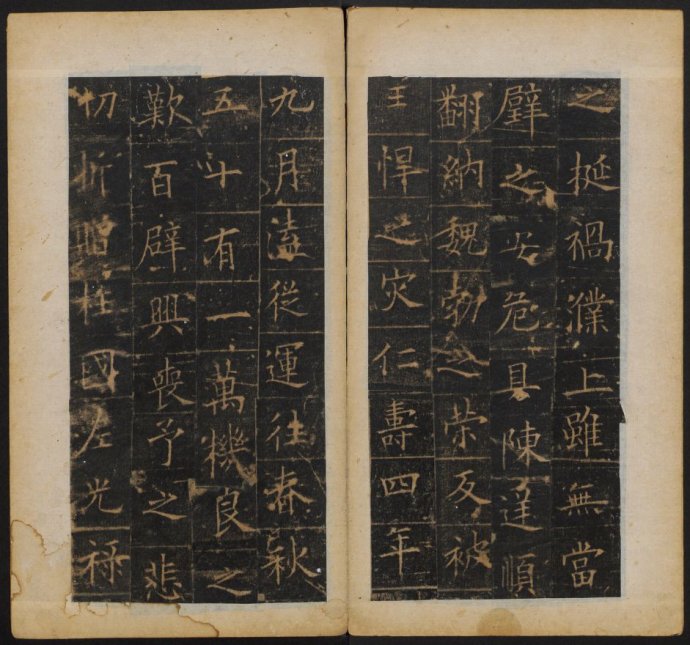 之挻禍濮上雖無當
璧之安危具陳逆順
翻納魏勃之榮反被
王悍之灾仁壽四年
九月溘從運往春秋
五十有一萬機良之
歎百辟興喪予之悲
切折贈柱國左光祿